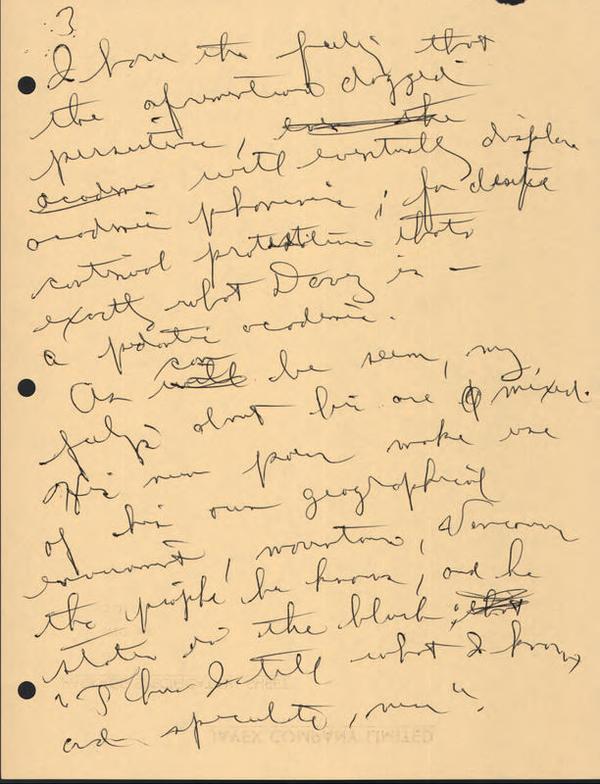 3
I have the feeling that
the aforementioned dogged
persistence, 
academic will eventually displace
academic phoneiness; for despite
continual protestations that's
exactly what Davey is —
a pedantic academic.
As can be seen, my
feelings about him are mixed.
His new poems make use
of his own geographical
environment, mountains, Vancouver
the people he knows, and he
states on the back
"I tell what I know,
and speculate, now".
JAVEX COMPANY LIMITED